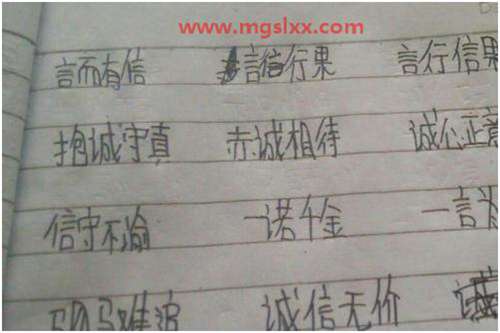 www.mgslxx.com
言而有信 言信行果 言行信果
抱诚守真 赤诚相待 诚心正意
信守不渝 一诺千金 一言
难追 诚信无价 诚